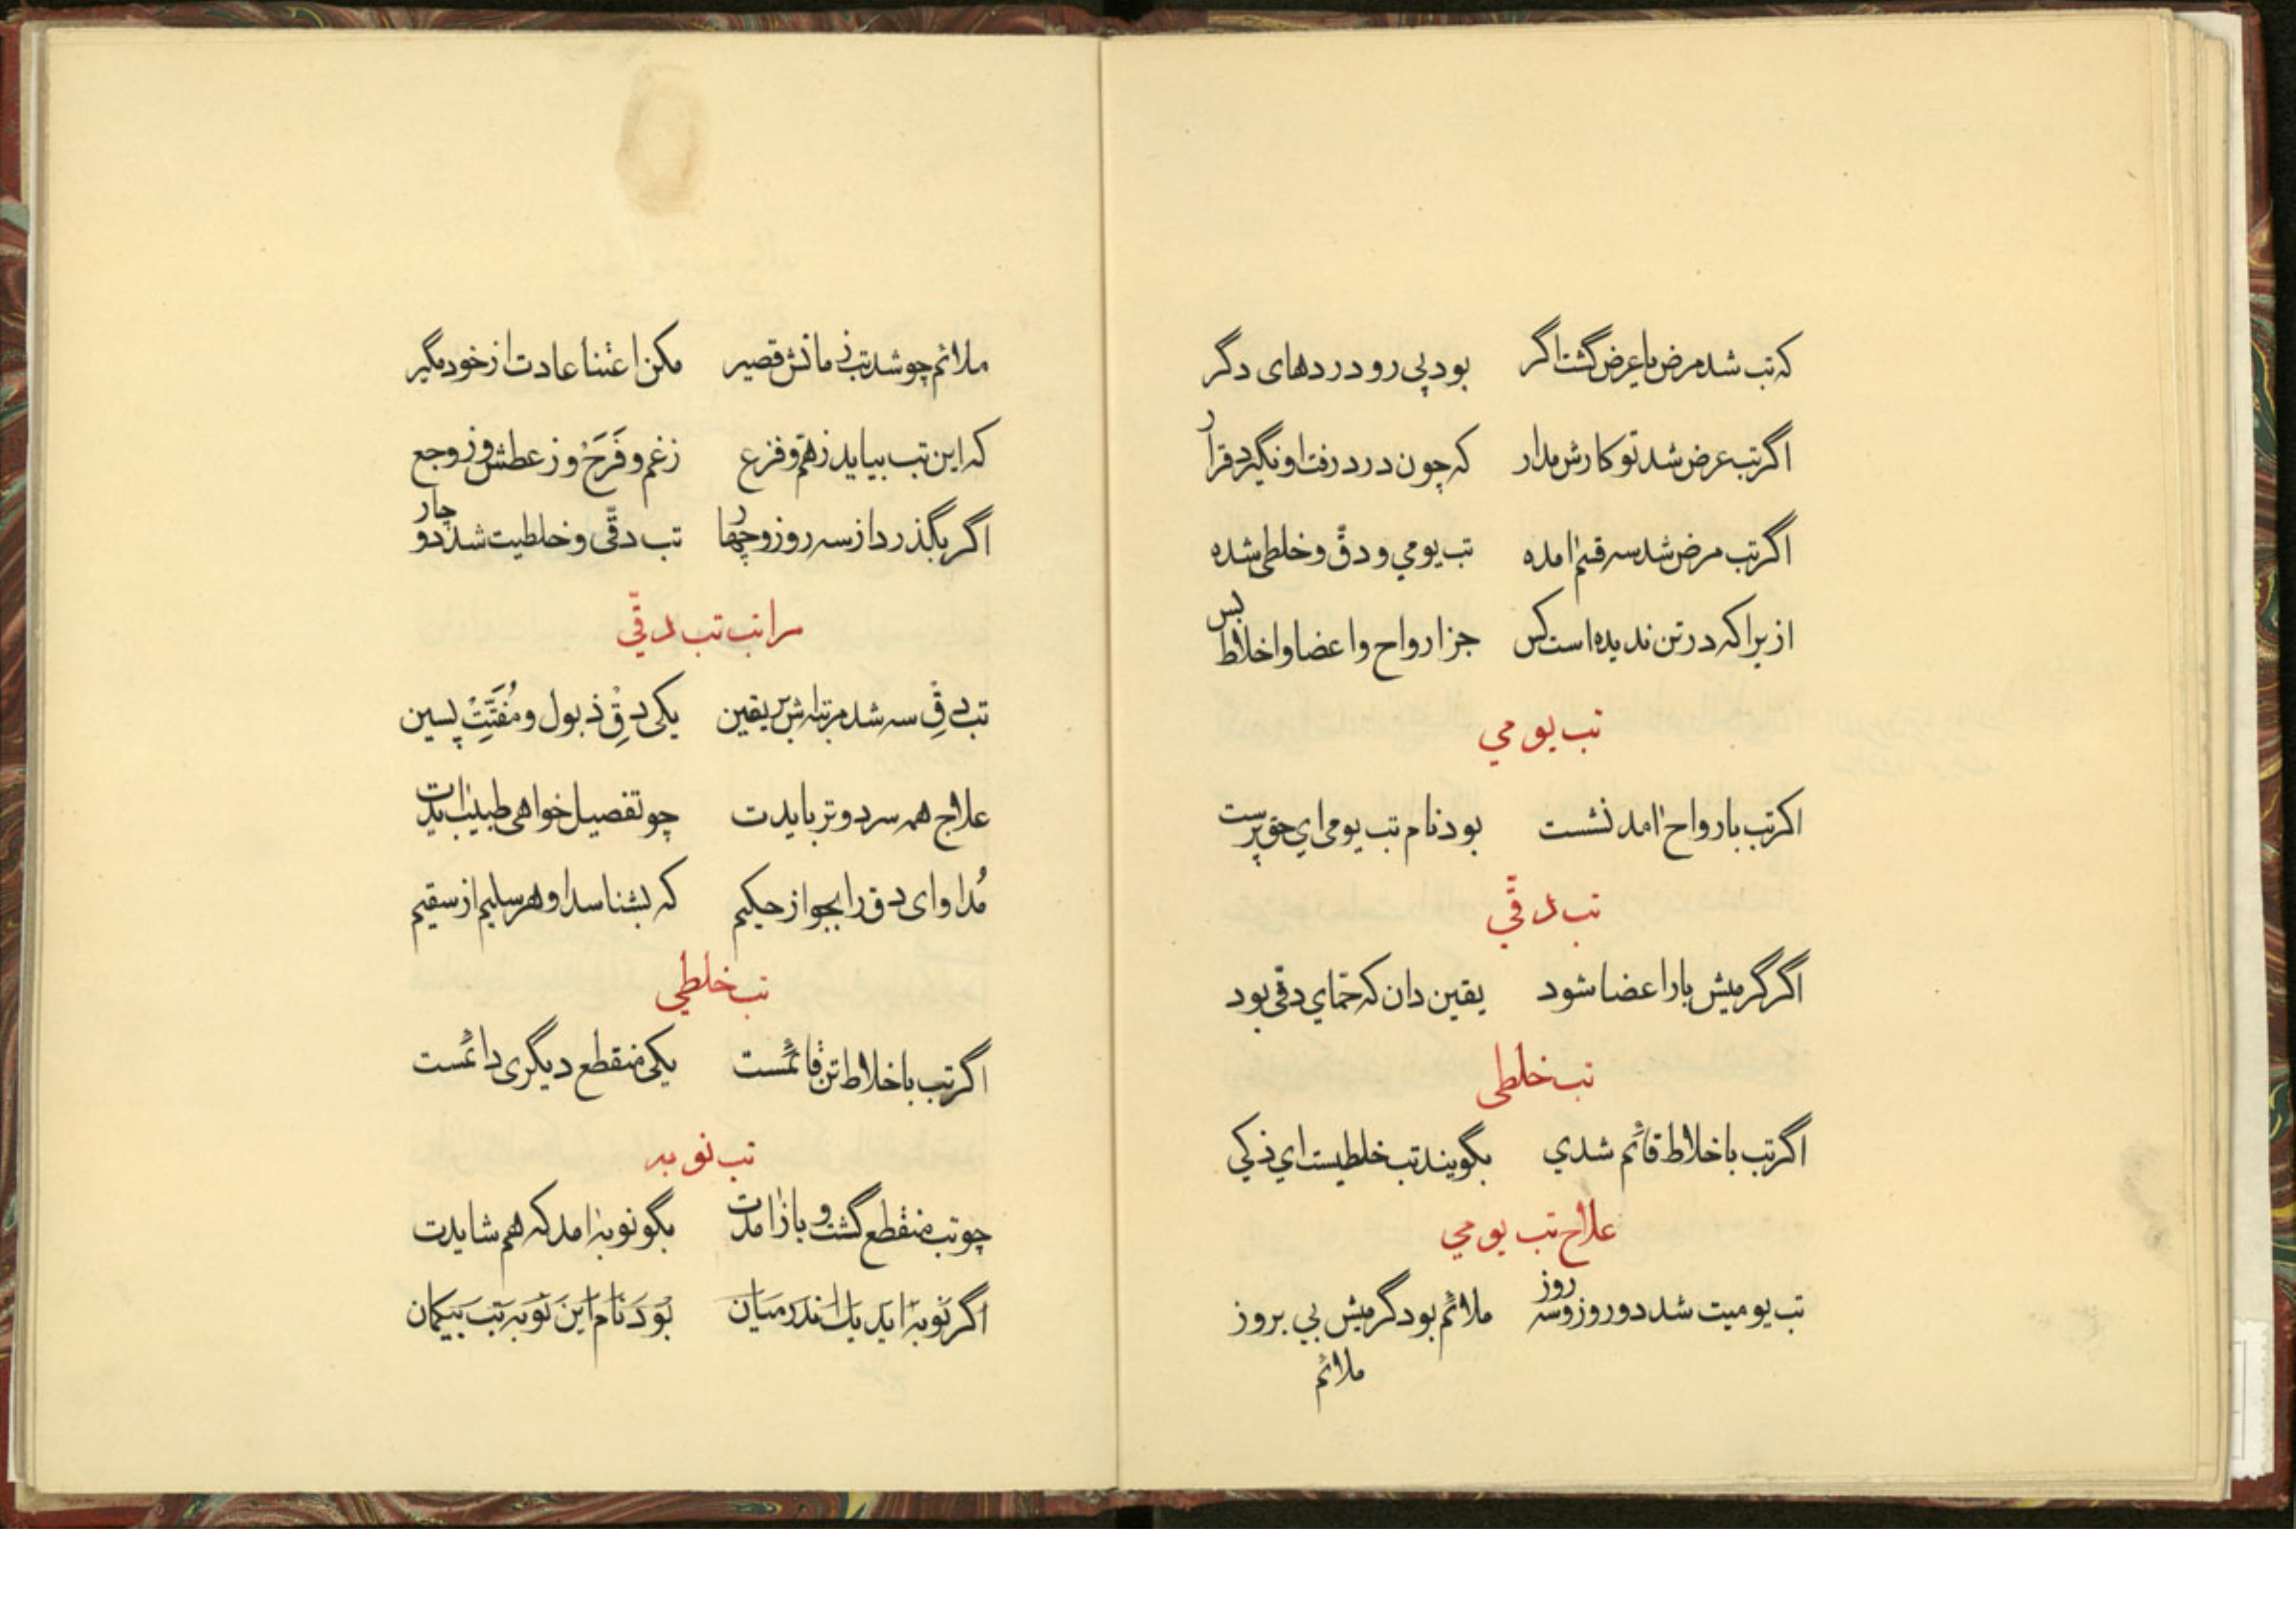 که تب شد مرض یا عرض گشت اگر بود پی رو دردهای دگر
اگر تب عرض شد تو کارش مدار که چون درد رفت او نگیرد قرار
اگر تب مرض شد سه قسم امده تب یومي و دقّ و خلطی شده
از یرا که در تن ندیده است کس جز ارواح و اعضا و اخلاط بس
تب یومي
اکر تب بارواح امد نشست بود نام تب یومی اي حق پرست
تب دقّي
اگر گرمیش یار اعضا شود یقین دان که حمّاي دقّی بود
تب خلطی
اگر تب باخلاط قائم شدي بگویند تب خلطیست اي ذکي
علاج تب یومي
تب یومیت شد دو روز و سه روز ملائم بود گرمیش بي بروز
ملائم
ملائم چو شد تب زمانش قصیر مکن اعتنا عادت از خود مگیر
که این تب بیاید ز همّ و فزع ز غم و فَرَحْ و ز عطش و ز وجع
اگر بگذرد از سه روز و چهار تب دقّی و خلطیت شد دو چار
مراتب تب دقّي
تب دقِ سه شد مرتبه اش بر یقین یکی دقِّ ذبول و مُفَتِّتْ پسین
علاج همه سرد و تر بایدت چو تفصیل خواهی طبیب ایدت
مُداوای دق را بجو از حکیم که بشناسد او هر سلیم از سقیم
تب خلطي
اگر تب باخلاط تن قائمست یکی منقطع دیگری دائمست
تب نوبه
چو تب منقطع گشت و باز امدت بگو نوبه امد که هم شایدت
اگر نوبه اید یك اندر میان بود نام این نوبه تب بیکمان